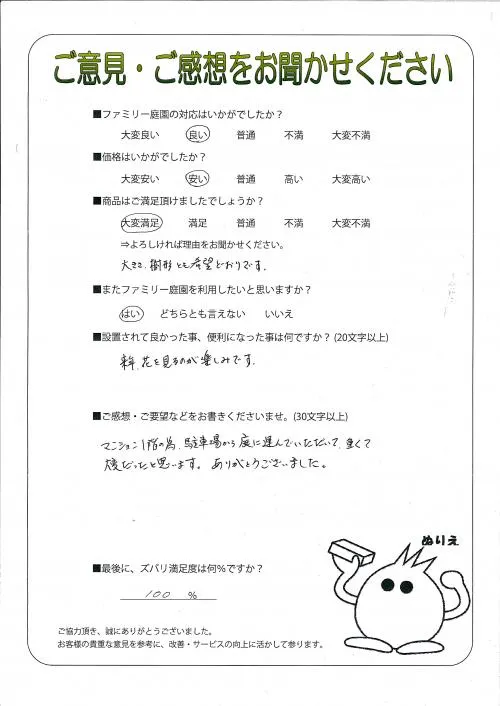 ご意見・ご感想をお聞かせください
■ファミリー庭園の対応はいかがでしたか?
大変良い 良い 普通 不満 大変不満
■価格はいかがでしたか?
大変安い 安い 普通 高い 大変高い
■商品はご満足頂けましたでしょうか?
大変満足 満足 普通 不満 大変不満
⇒よろしければ理由をお聞かせください。
大きさ、樹形とも希望どおりです。
■またファミリー庭園を利用したいと思いますか?
はい どちらとも言えない いいえ
■設置されて良かった事、便利になった事は何ですか? (20文字以上)
来年、花を見るのが楽しみです。
■ご感想・ご要望などをお書きくださいませ。(30文字以上)
マンション1階の為、駐車場から庭に運んでいただいて、重くて
大変だったと思います。ありがとうございました。
ぬりえ
■最後に、ズバリ満足度は何%ですか?
100 %
ご協力頂き、誠にありがとうございました。
お客様の貴重な意見を参考に、改善・サービスの向上に活かして参ります。